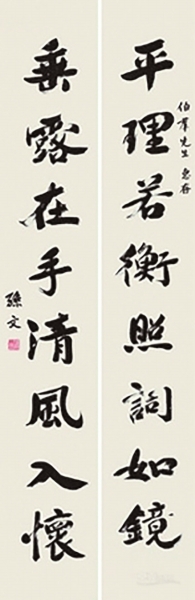 平理若衡照詞如鏡
伯羣先生惠存
垂露在手清風入懷
孫文